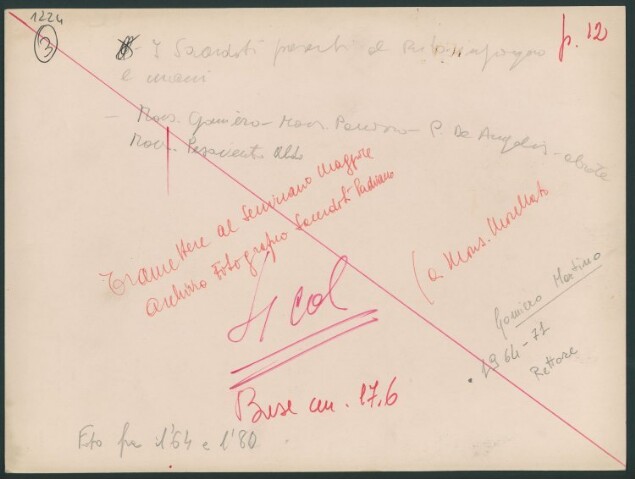 1224
3
p. 12
- I Sacerdoti presenti
e mani
- Mons. Gomiero - Mons. - P. De Angelis - abate
Mons. Pesavento Aldo
Trasmettere al Seminario Maggiore
Archivio Fotografico Sacerdoti Padovani
(a Mons. Morellato
4 col
Base cm. 17,6
Gomiero Martino
1964-71
Rettore
Foto fra il '64 e l'80